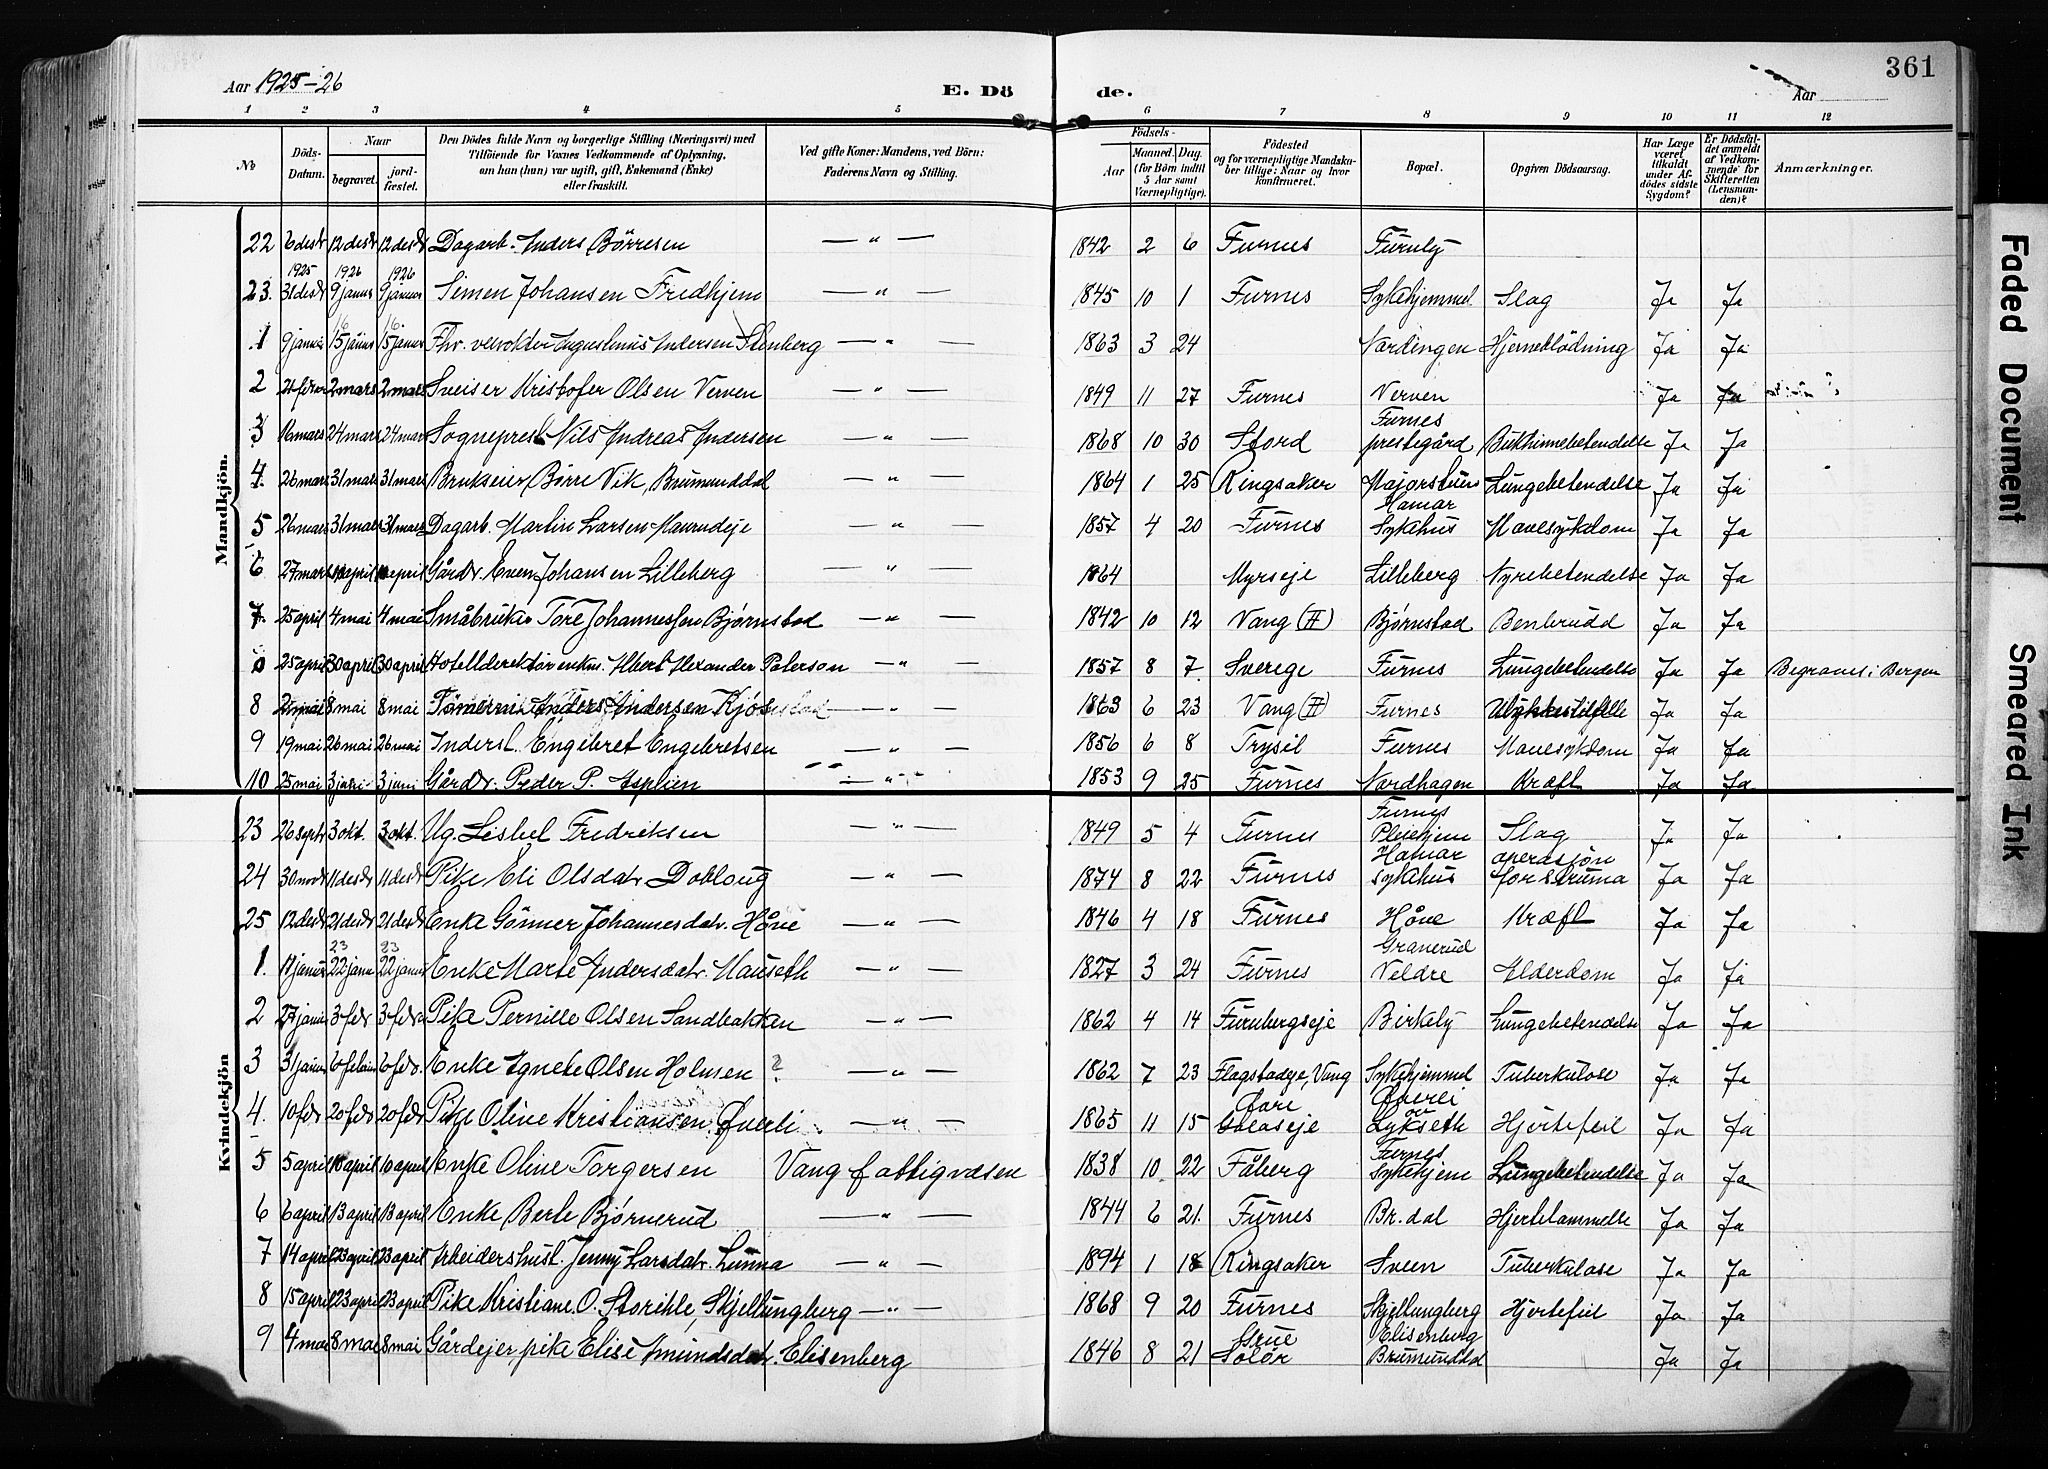 Aar 1925-26
E. Dö de.
Aar
361
1 2 3 4 5 6 7 8 9 10 11 12
No
Döds-Datum.
Naar begravet. jordfæstet.
Den Dödes fulde Navn og borgerlige Stilling (Næringsvei) med Tilföiende for Voxnes Vedkommende af Oplysning, om han (hun) var ugift, gift, Enkemand (Enke) eller fraskilt.
Ved gifte Koner: Mandens, ved Börn: Faderens Navn og Stilling.
Födsels-
Aar Maaned. Dag. (for Börn indtil 5 Aar samt Værnepligtige).
Födested og for værnepligtige Mandskaber tillige: Naar og hvor konfirmeret.
Bopæl.
Opgiven Dödsaarsag.
Har Læge været tilkaldt under Afdödes sidste Sygdom?
Er Dödsfaldet anmeldt af Vedkommende for Skifteretten (Lensmanden)?
Anmærkninger.
Mandkjön.
22 6 desbr 12 desbr 12 desbr Dagarb. Anders Börresen — " — 1842 2 6 Furnes Furuly
1925 1926 1926
23. 31 desbr 9 januar 9 januar Simen Johansen Fredhjem — " — 1845 10 1 Furnes Sykehjemmet Slag Ja Ja
16 16
1 9 januar 15 januar 15 januar Fhv. veivokter Augustinius Andersen Stenberg — " — 1863 3 24 Nordengen Hjerneblödning Ja Ja
2 21 febr 2 mars 2 mars Sveiser Kristofer Olsen Verven — " — 1849 11 27 Furnes Verven Ja Ja
3 16 mars 24 mars 24 mars Sogneprest Nils Andreas Andersen — " — 1868 10 30 Stord Furnes prestegård Bukhinnebetendelse Ja Ja
4. 26 mars 31 mars 31 mars Brukseier Börre Vik, Brumunddal — " — 1864 1 25 Ringsaker Majorstuen Lungebetendelse Ja Ja
5 26 mars 31 mars 31 mars Dagarb. Martin Larsen Maurudeje " — 1857 4 20 Furnes Hamar Sykehus Mavesykdom Ja Ja
6 27 mars april april Gårdbr. Even Johansen Lilleberg — " — 1864 Myrseje Lilleberg Nyrebetendelse Ja Ja
7. 25 april 4 mai 4 mai Småbruker Tore Johannessen Bjørnstad — " — 1842 10 12 Vang (H) Bjørnstad Benbrudd Ja Ja
0 25 april 30 april 30 april Hotelldirektör enkm. Albert Alexander Paterson — " — 1857 8 7. Sverege Furnes Lungebetendelse Ja Ja Begraves i Bergen
8 2 mai 8 mai 8 mai Anders Andersen — " — 1863 6 23 Vang (H) Furnes Ulykkestilfelle Ja Ja
9 19 mai 26 mai 26 mai Inderst. Engebret Engebretsen — " — 1856 6 8 Trysil Furnes Mavesykdom Ja Ja
10 25 mai 3 juni 3 juni Gårdbr. Peder P. Asplien — " — 1853 9 25 Furnes Nordhagen Kræft Ja Ja
Kvindekjön
23 26 septr 3 okt. 3 okt. Ug. Lisbet Fredriksen — " — 1849 5 4 Furnes Furnes Pleiehjem Slag Ja Ja
24 30 novbr 11 desbr 11 desbr Pike Eli Olsdatr Dobloug — " — 1874 8 22 Furnes Hamar sykehus operasjon for struma Ja Ja
25 12 desbr 21 desbr 21 desbr Enke Gönner Johannesdatr. Håve — " — 1846 4 18 Furnes Håve Kræft Ja Ja
23 23
1. 11 januar 22 januar 22 januar Enke Marte Andersdatr. Mauseth — " — 1827 3 24 Furnes Granerud Veldre Elderdom Ja Ja
2 27 januar 3 febr 3 febr Pike Pernille Olsen Sandbakken — " — 1862 4 14 Furubergseje Birkely Lungebetendelse Ja Ja
3 31 januar 6 februar 6 febr. Enke Agnete Olsen Holmsen ? — " — 1862 7 23 Flagstadeje, Vang Sykehjemmet Tuberkulose Ja Ja
4. 10 febr 20 febr 20 febr Pike Oline Kristiansen Øverli — " — 1865 11 15 Øverli Lykseth Hjertefeil Ja Ja
5 5 april 10 april 10 april Enke Oline Torgersen Vang fattigvæsen 1838 10 22 Fåberg Furnes sykehjem Lungebetendelse Ja Ja
6 6 april 13 april 13 april Enke Berte Bjørnerud — " — 1844 6 21 Furnes Br.dal Hjertelammelse Ja Ja
7 14 april 23 april 23 april Arbeidershust. Jenny Larsdatr. Lunna — " — 1894 1 18 Ringsaker Sveen Tuberkulose Ja Ja
8 15 april 23 april 23 april Pike Kristiane O. Storihle, Skjellungberg — " — 1868 9 20 Furnes Skjellungberg Hjertefeil Ja Ja
9 4 mai 8 mai 8 mai Gårdejer, pike Elise Amundsdatr. Elisenberg 1846 8 21 Grue Solör Elisenberg Brumunddal Ja Ja
Faded Document
Smeared Ink